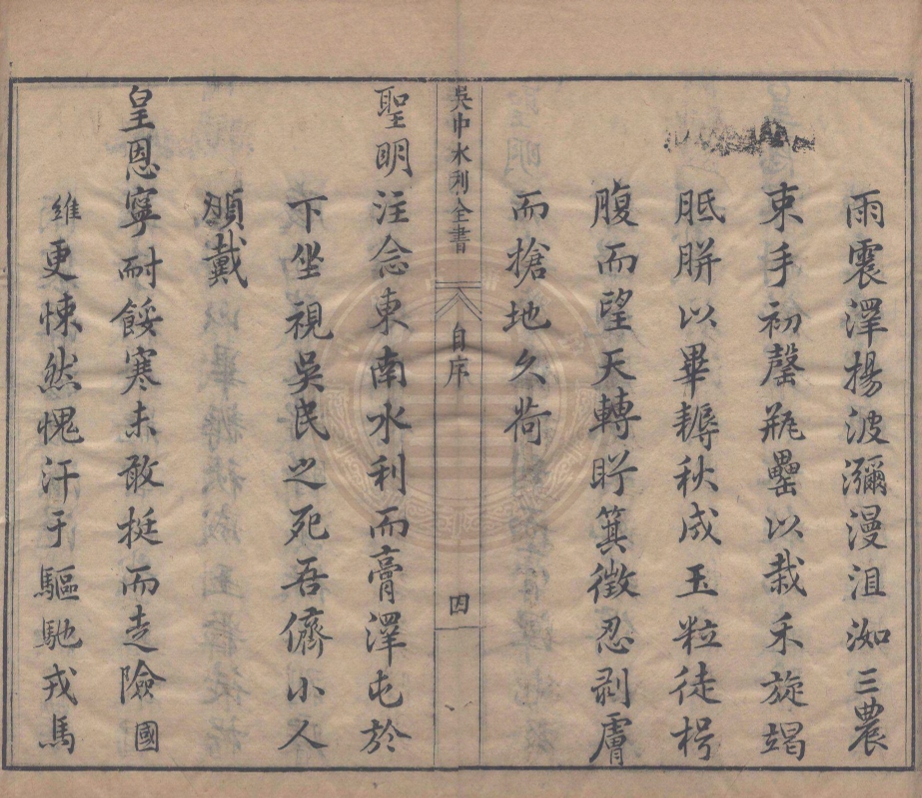 雨震澤揚波瀰漫沮洳三農
束手初罄瓶罍以栽禾旋竭
胝胼以畢耨秋成玉粒徒枵
腹而望天轉盱箕徵忍剥膚
而搶地久荷
吳中水利全書 自序 四
聖明注念東南水利而膏澤屯於
下坐視吳民之死吾儕小人
頫戴
皇恩寧耐餒寒未敢挺而走險國
維更悚然愧汗于驅馳戎馬